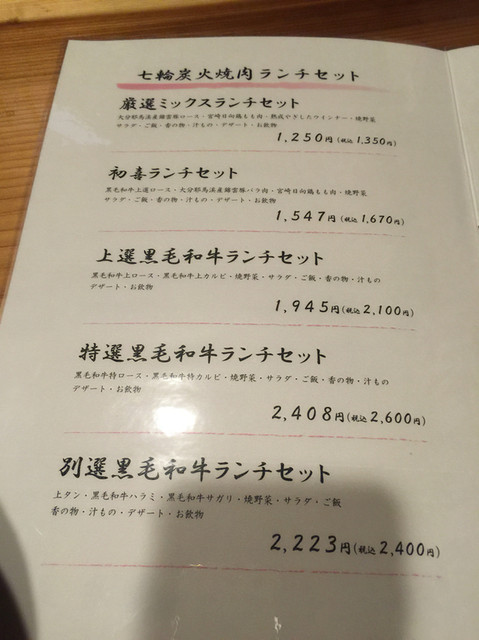 七輪炭火焼肉ランチセット
厳選ミックスランチセット
大分耶馬渓産錦雲豚ロース・宮崎日向鶏もも肉・熟成やぎしたウインナー・焼野菜
サラダ・ご飯・香の物・汁もの・デザート・お飲物
1,250円(税込1,350円)
初喜ランチセット
黒毛和牛上選ロース・大分耶馬渓産錦雲豚バラ肉・宮崎日向鶏もも肉・焼野菜
サラダ・ご飯・香の物・汁もの・デザート・お飲物
1,547円(税込1,670円)
上選黒毛和牛ランチセット
黒毛和牛上ロース・黒毛和牛上カルビ・焼野菜・サラダ・ご飯・香の物・汁もの
デザート・お飲物
1,945円(税込2,100円)
特選黒毛和牛ランチセット
黒毛和牛特ロース・黒毛和牛特カルビ・焼野菜・サラダ・ご飯・香の物・汁もの
デザート・お飲物
2,408円(税込2,600円)
別選黒毛和牛ランチセット
上タン・黒毛和牛ハラミ・黒毛和牛サガリ・焼野菜・サラダ・ご飯
香の物・汁もの・デザート・お飲物
2,223円(税込2,400円)